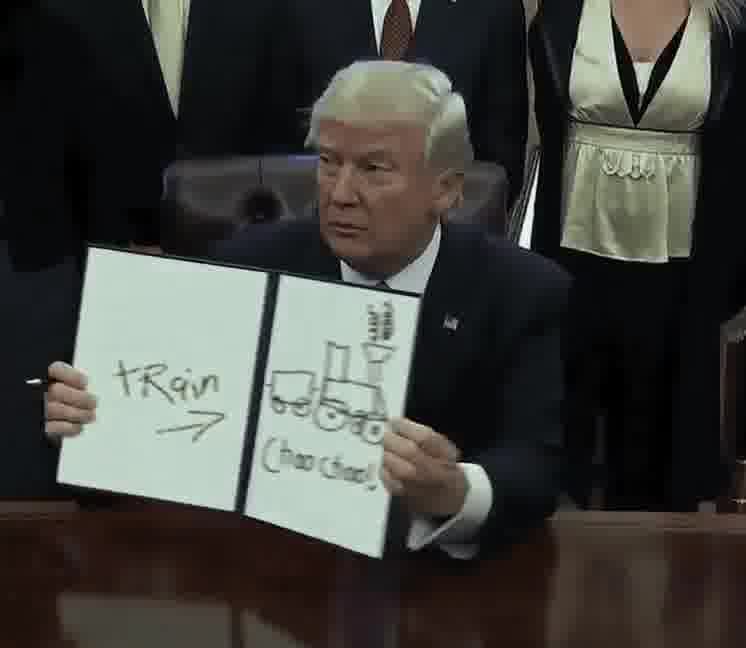 tRain
Choo choo!